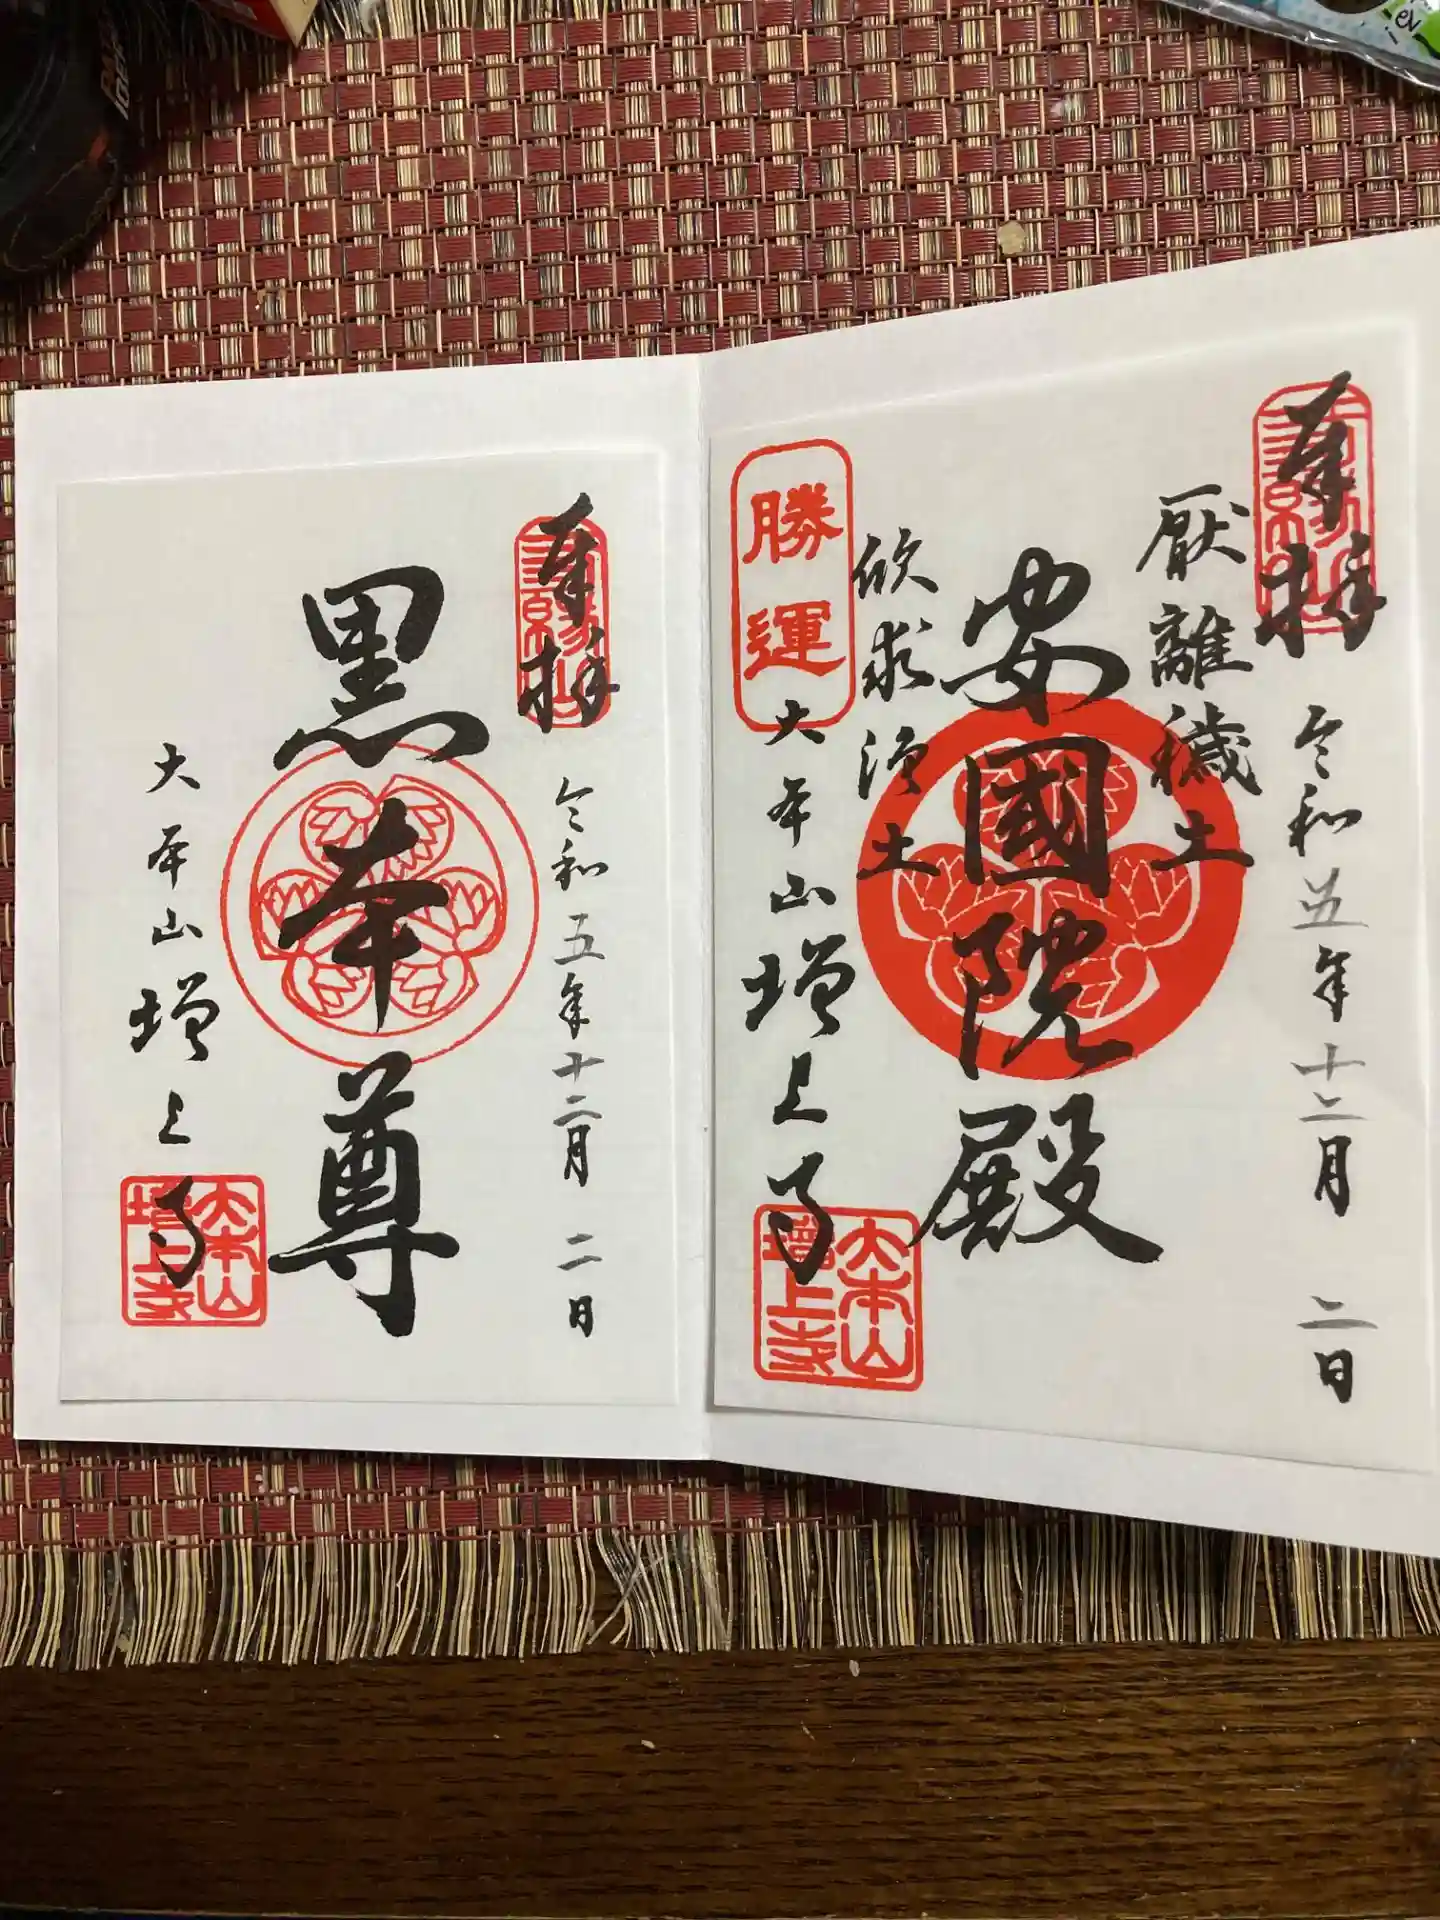 奉拝
令和五年十二月 二日
厭離穢土
安國院殿
欣求浄土
勝運
大本山増上寺
大本山
増上寺
奉拝
令和五年十二月 二日
黒本尊
大本山増上寺
大本山
増上寺